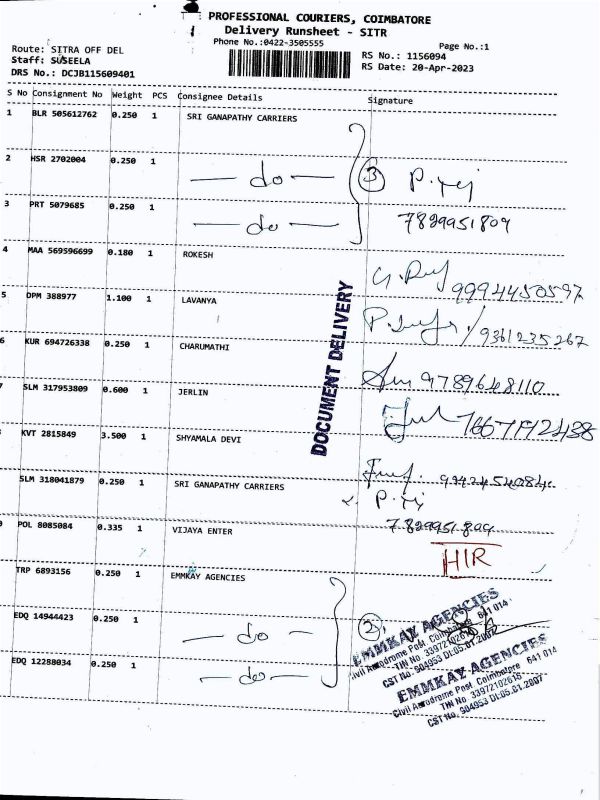 PROFESSIONAL COURIERS, COIMBATORE
Delivery Runsheet - SITR
Phone No.:0422-3505555
Page No.:1
Route: SITRA OFF DEL
Staff: SUSEELA
DRS No.: DCJB115609401
RS No.: 1156094
RS Date: 20-Apr-2023
S No Consignment No Weight PCS Consignee Details Signature
1 BLR 505612762 0.250 1 SRI GANAPATHY CARRIERS
2 HSR 2702004 0.250 1 — do —
3
3 PRT 5079685 0.250 1 — do — 7829951809
4 MAA 569596699 0.180 1 ROKESH 9994450597
5 DPM 388977 1.100 1 LAVANYA 9361235267
6 KUR 694726338 0.250 1 CHARUMATHI 9789648110
SLM 317953809 0.600 1 JERLIN
KVT 2815849 3.500 1 SHYAMALA DEVI
SLM 318041879 0.250 1 SRI GANAPATHY CARRIERS
POL 8085084 0.335 1 VIJAYA ENTER
HIR
TRP 6893156 0.250 1 EMMKAY AGENCIES
EDQ 14944423 0.250 1 — do —
2
EDQ 12288034 0.250 1 — do —
DOCUMENT DELIVERY
EMMKAY AGENCIES
Civil Aerodrome Post, Coimbatore 641 014
TIN No 33972102616
CST No. 904953 Dt.05.01.2007
EMMKAY AGENCIES
Civil Aerodrome Post, Coimbatore 641 014
TIN No. 33972102616
CST No. 904953 Dt.05.01.2007